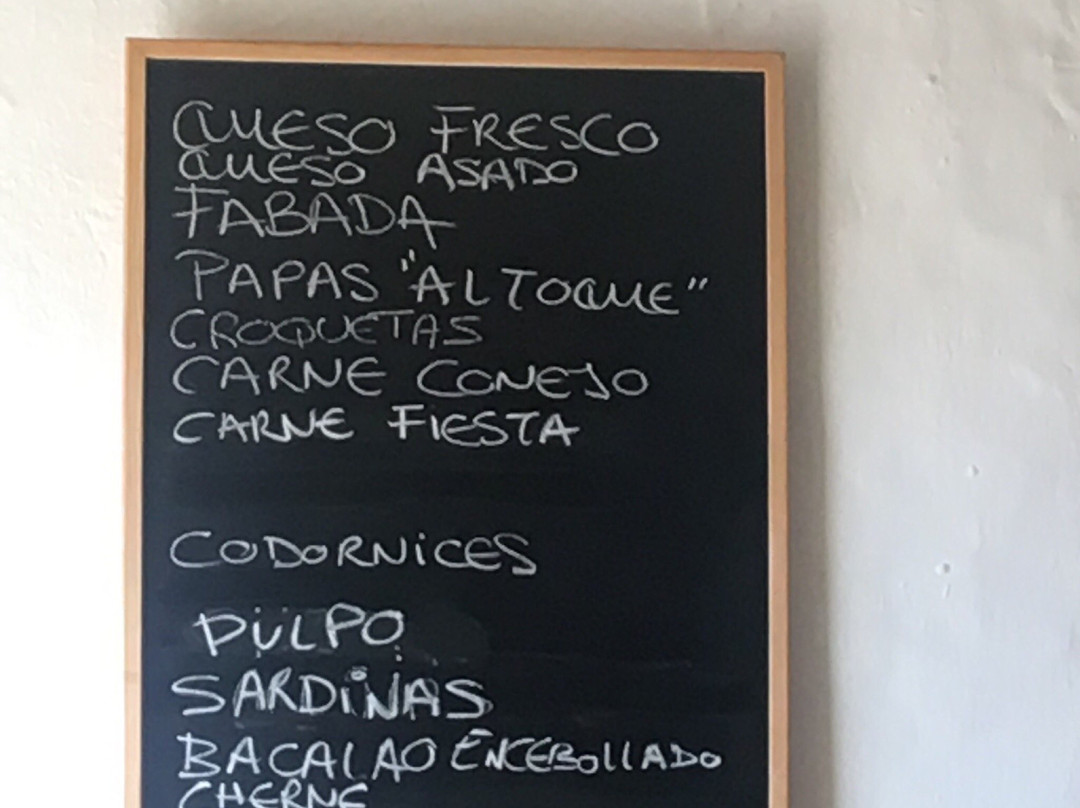 QUESO FRESCO
QUESO ASADO
FABADA
PAPAS "AL TOQUE"
CROQUETAS
CARNE CONEJO
CARNE FIESTA
CODORNICES
PULPO
SARDINAS
BACALAO ENCEBOLLADO
CHERNE